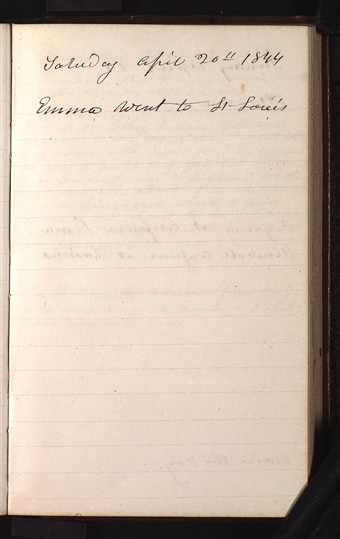 Saturday April 20th 1844
Emma went to St Louis